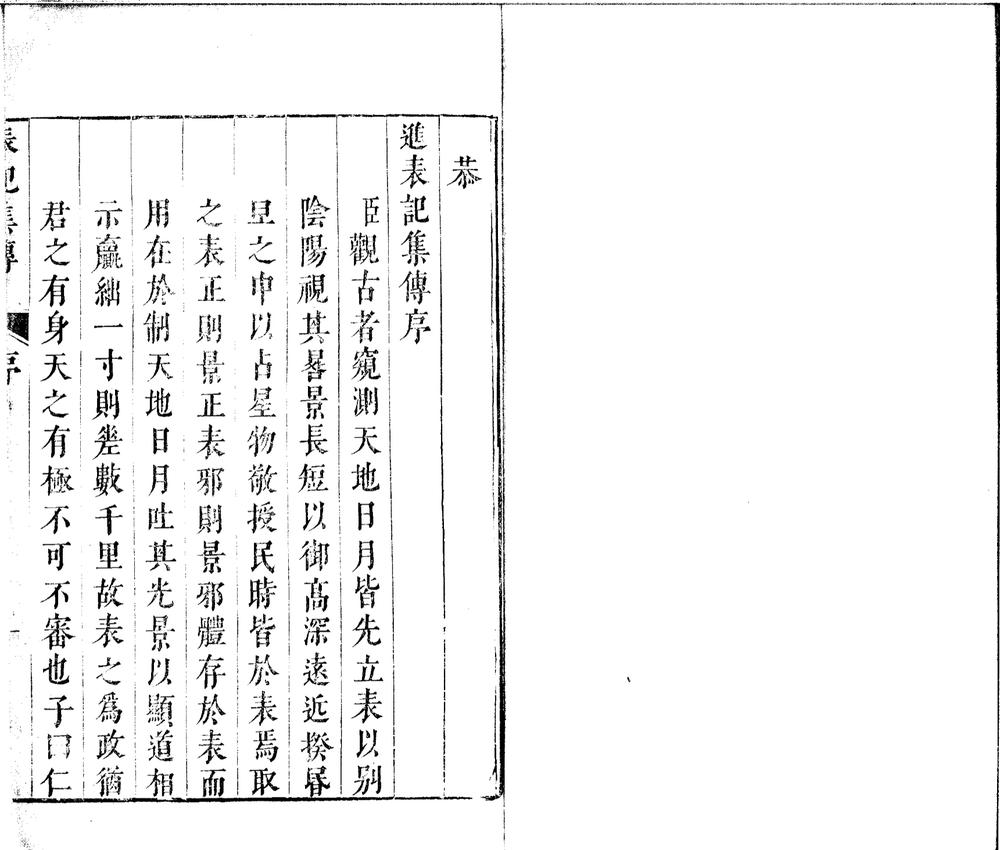 恭
進表記集傳序
臣觀古者窺測天地日月皆先立表以别
陰陽視其晷景長短以御高深遠近揆昏
旦之中以占星物敬授民時皆於表焉取
之表正則景正表邪則景邪體存於表而
用在於制天地日月吐其光景以顯道相
示贏絀一寸則差數千里故表之爲政猶
君之有身天之有極不可不審也子曰仁
表記集傳 序 一